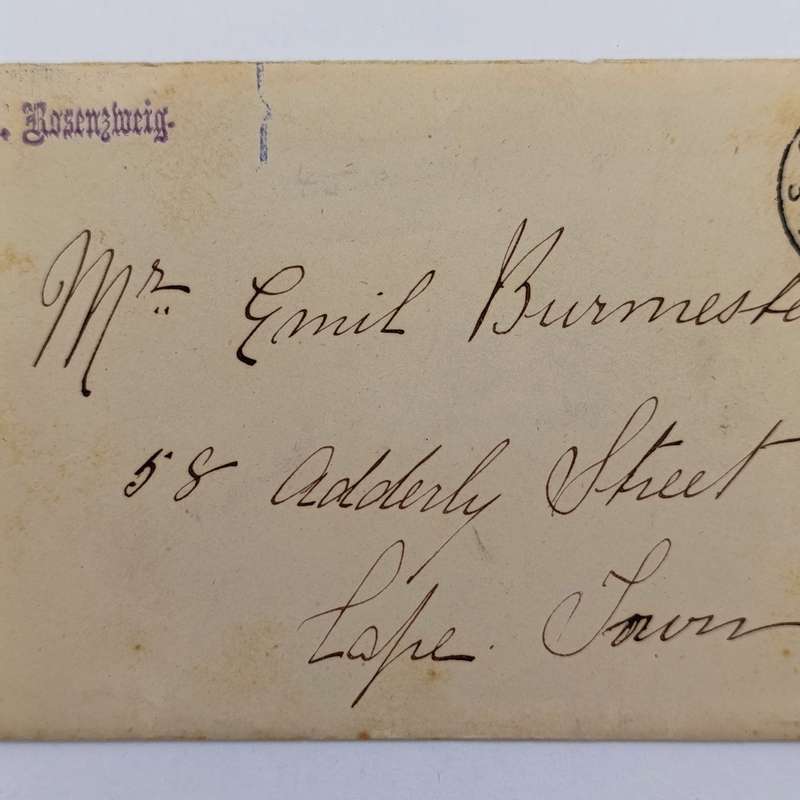 . Rosenzweig.
Mr. Emil Burmeste
58 Adderly Street
Cape Town